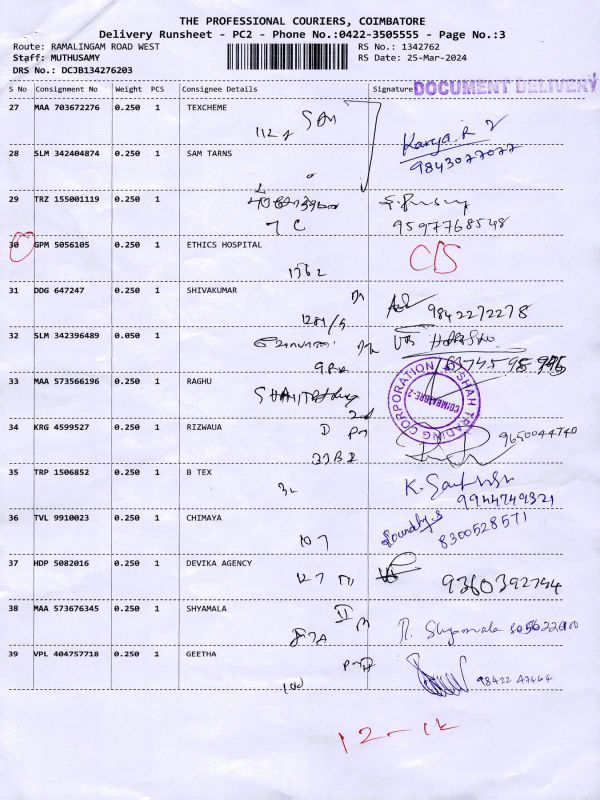 THE PROFESSIONAL COURIERS, COIMBATORE
Delivery Runsheet - PC2 - Phone No.:0422-3505555 - Page No.:3
Route: RAMALINGAM ROAD WEST RS No.: 1342762
Staff: MUTHUSAMY RS Date: 25-Mar-2024
DRS No.: DCJB134276203
S No Consignment No Weight PCS Consignee Details Signature DOCUMENT DELIVERY
27 MAA 703672276 0.250 1 TEXCHEME
28 SLM 342404874 0.250 1 SAM TARNS
9843077077
29 TRZ 155001119 0.250 1
7 C 9597768548
30 GPM 5056105 0.250 1 ETHICS HOSPITAL C/S
1562
31 DDG 647247 0.250 1 SHIVAKUMAR
1281/5 9842272278
32 SLM 342396489 0.050 1
33 MAA 573566196 0.250 1 RAGHU
SHAH TRADING CORPORATION
COIMBATORE-2
34 KRG 4599527 0.250 1 RIZWAUA 9650044740
35 TRP 1506852 0.250 1 B TEX
9944749321
36 TVL 9910023 0.250 1 CHIMAYA
107 8300528571
37 HDP 5082016 0.250 1 DEVIKA AGENCY
127 9360392754
38 MAA 573676345 0.250 1 SHYAMALA II
Shyamala
39 VPL 404757718 0.250 1 GEETHA
100 98422 47464
12-1k